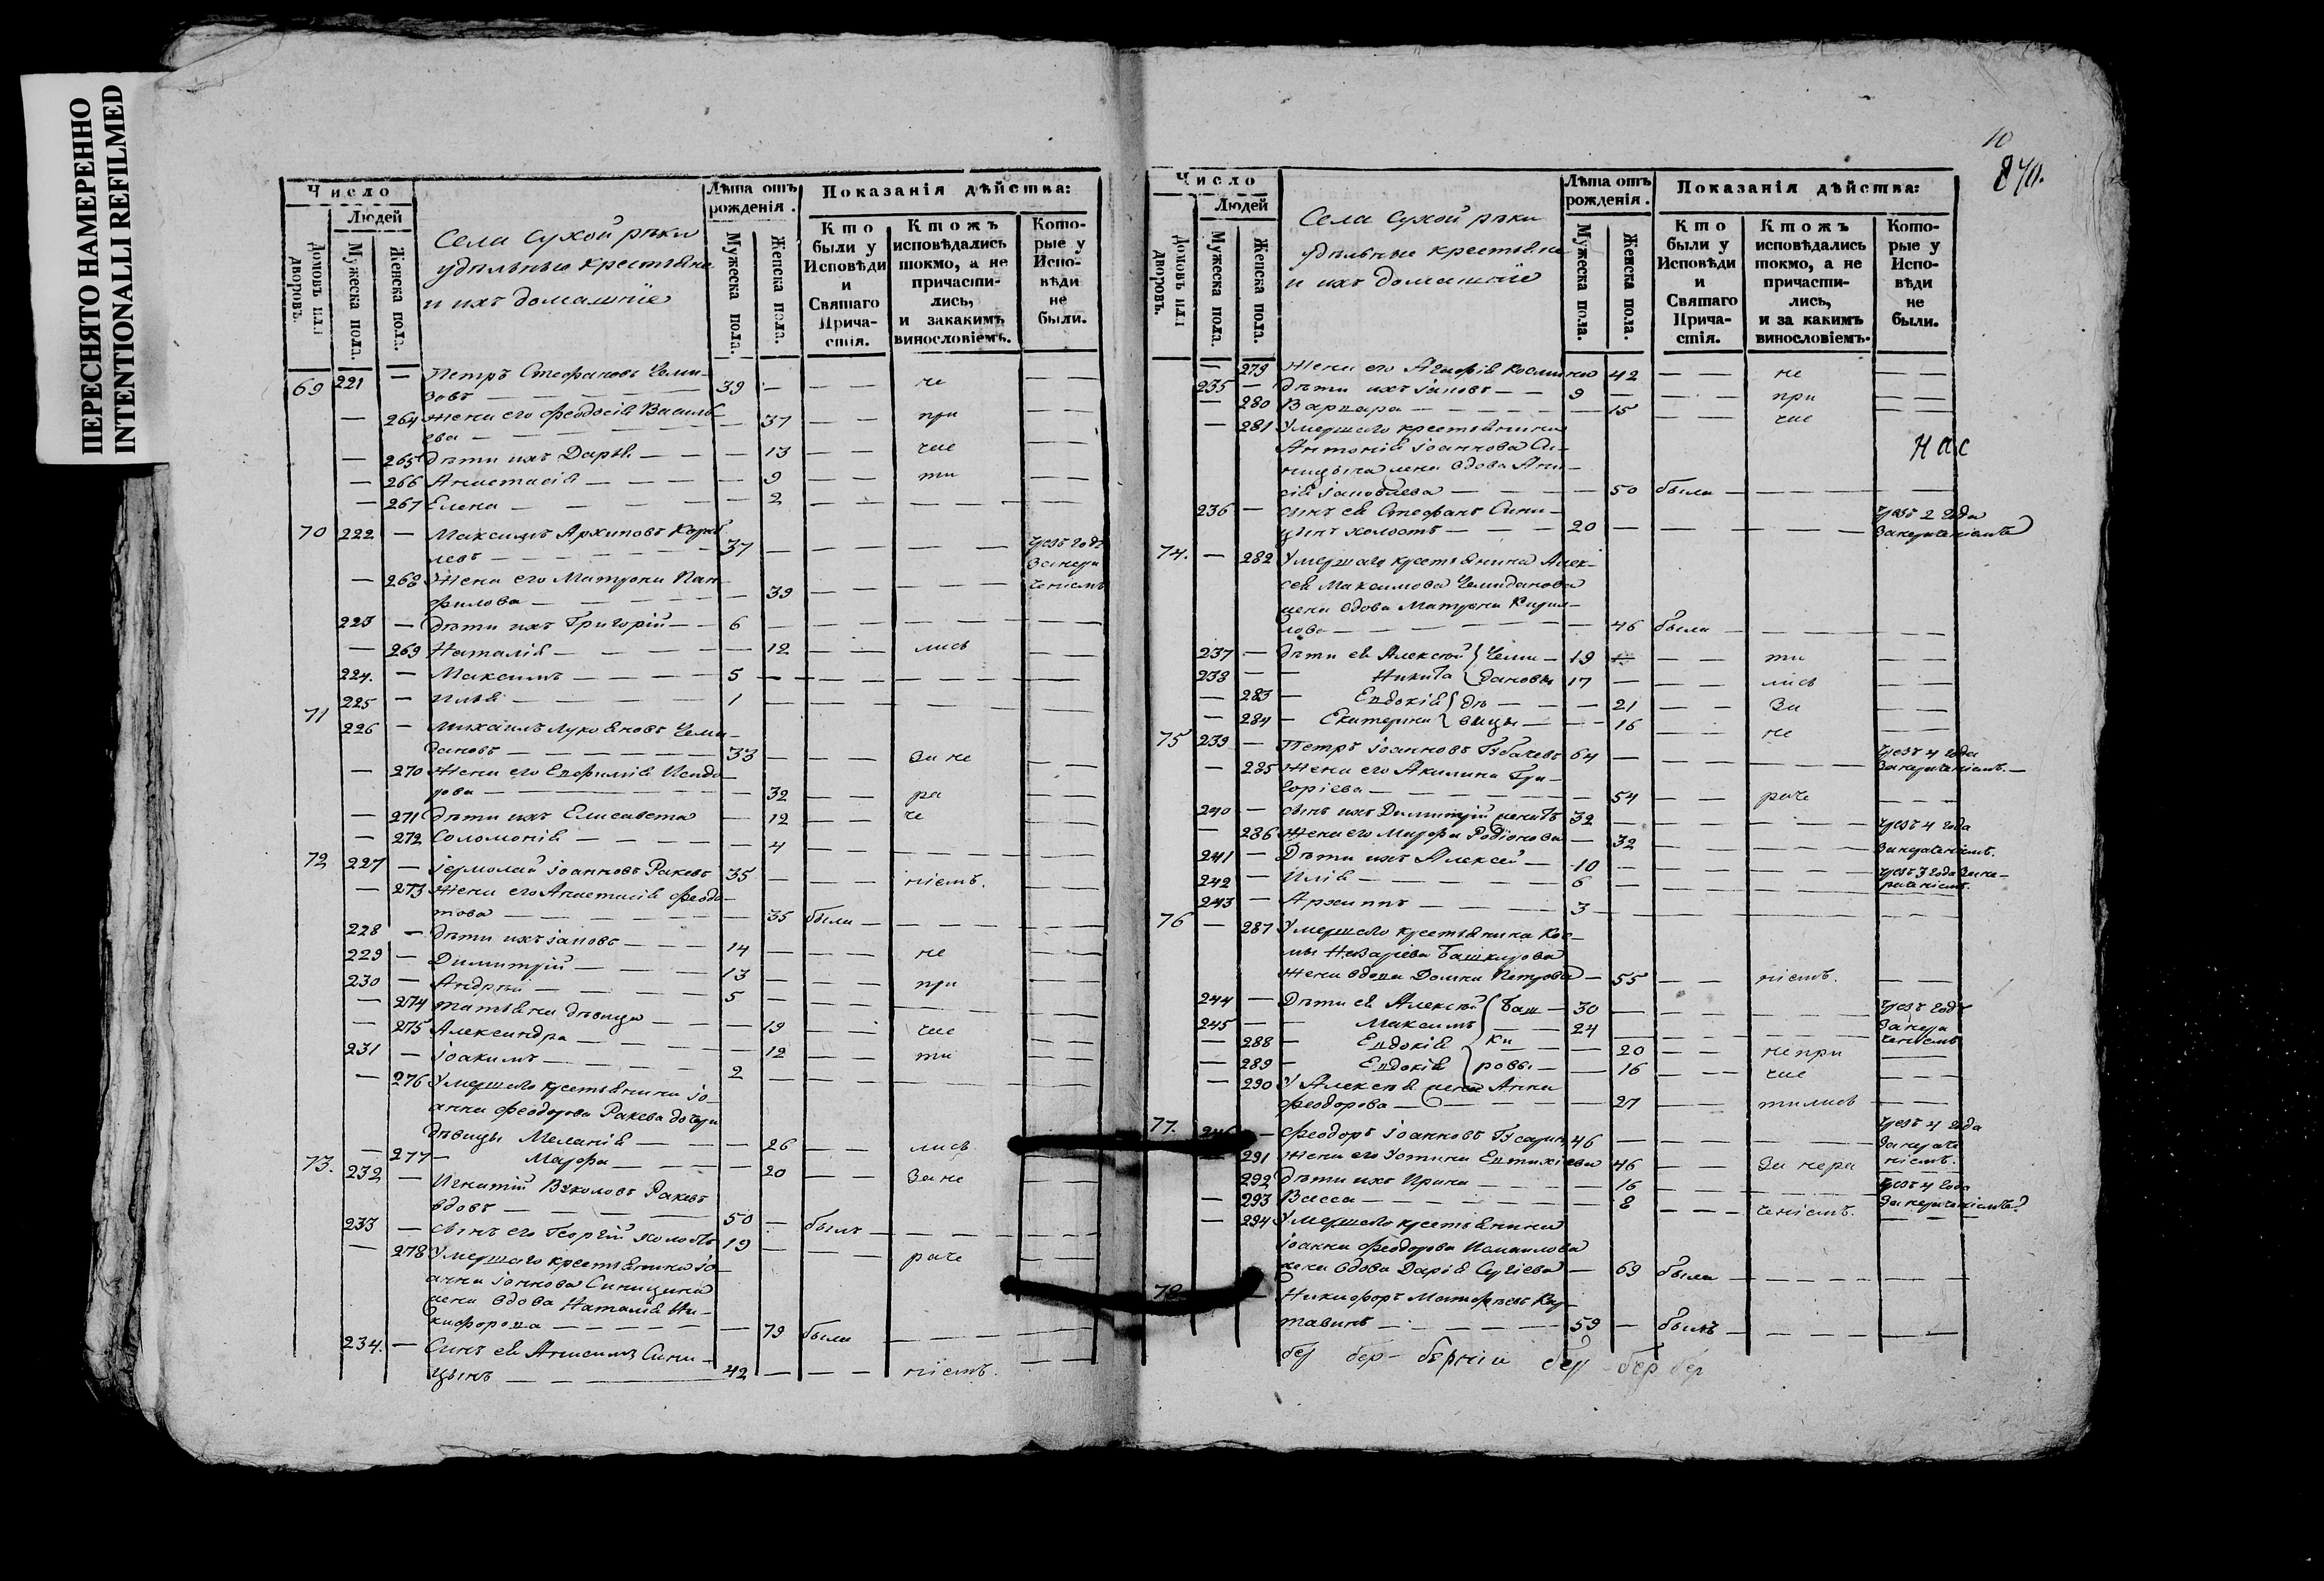 ПЕРЕСНЯТО НАМЕРЕННО
INTENTIONALLI REFILMED
Число
Людей
Домовъ или дворовъ.
Мужеска пола.
Женска пола.
Села Сухой рѣки
удѣльные крестьяне
и ихъ домашніе
Лѣта отъ рожденія.
Мужеска пола.
Женска пола.
Показанія дѣйства:
Кто были у Исповѣди и Святаго Прича-стія.
Ктожъ исповѣдались токмо, а не причасти-лись, и закакимъ винословіемъ.
Кото-рые у Испо-вѣди не были.
69 221 — Петръ Стефановъ Чеми-
39 — — — не — —
— 264 Жена его Феодосія Василь-
ева — — 37 — — при — —
— 265 Дѣти ихъ Дарья — — 13 — — чие — —
— 266 Анастасія — — 9 — — ти — —
— 267 Елена — — 2 — — — — —
70 222 — Максимъ Архиповъ
37 — — — — — чрезъ годъ
— 268 Жена его Матрона Пан-
филова — — 39 — — — — за нера
ченіемъ
223 — Дѣти ихъ Григорій — 6 — — — — —
— 269 Наталія — — 12 — — лись — —
224. — Максимъ — 5 — — — — —
225 — Илья — 1 — — — — —
71 226 — Михаилъ Лукояновъ Чеми-
дановъ — 33 — — — за не — —
— 270 Жена его Евфимія Исидо-
рова — — 32 — — ра — —
— 271 Дѣти ихъ Елисавета — 12 — — че — —
— 272 Соломонія — — 4 — — — — —
72 227 — Іермолай Іоанновъ Ракевъ 35 — — — ніемъ. — —
— 273 Жена его Анастасія Феодо-
това — — 35 были — — — —
228 — Дѣти ихъ Іаковъ — 14 — — — не — —
229 — Димитрій — 13 — — — при — —
230 — Андрей — 5 — — — — —
— 274 Татьяна дѣвица — 19 — — чие — —
— 275 Александра — — 12 — — ти — —
231 — Іоакимъ — 2 — — — — —
— 276 Умершаго крестьянина Іо-
анна Феодорова Ракева дочери
дѣвицы Меланія — — 26 — — лись — —
— 277 — Марфа — — 20 — — за не — —
73. 232 — Игнатій Вуколовъ Ракевъ
вдовъ — 50 — былъ — — — —
233 — сынъ его Георгій холостъ 19 — — — раче — —
— 278 Умершаго крестьянина Іо-
анна Іоннова Синицына
жена вдова Наталія Ни-
кифорова — — 79 были — — — —
234. — Сынъ ея Анисимъ Сини-
цынъ — 42 — — — ніемъ. — —
10
870.
Число
Людей
Домовъ или дворовъ.
Мужеска пола.
Женска пола.
Села Сухой рѣки
удѣльные крестьяне
и ихъ домашніе
Лѣта отъ рожденія.
Мужеска пола.
Женска пола.
Показанія дѣйства:
Кто были у Исповѣди и Святаго Прича-стія.
Ктожъ исповѣдались токмо, а не причасти-лись, и за какимъ винословіемъ.
Кото-рые у Испо-вѣди не были.
— 279 Жена его Агафія Космина 42 — — не — —
235 — Дѣти ихъ Іаковъ — 9 — — — при — —
— 280 Варвара — — 15 — — чие — —
— 281 Умершаго крестьянина
Антонія Іоаннова Си-
ницына жена вдова Ани-
сія Іаковлева — — 50 были — — — —
нас
236 — сынъ ея Стефанъ Сини-
цынъ холостъ — 20 — — — — чрезъ 2 года
за нераченіемъ
74. — 282 Умершаго крестьянина Алек-
сея Максимова Чемиданова
жена вдова Матрона Кирил-
лова — — 46 были — — — —
237 — Дѣти ея Алексѣй Чеми- 19 — — — ти — —
238 — — Никита дановы 17 — — — лись — —
— 283 — Евдокія дѣ — 21 — — за — —
— 284 — Екатерина вицы — 16 — — не — —
75 239 — Петръ Іоанновъ Губачевъ 64 — — — — чрезъ 4 года
за нераченіемъ. —
— 285 Жена его Акилина Гри-
горіева — — 54 — — раче — —
240 — сынъ ихъ Димитрій женатъ 32 — — — — чрезъ 4 года
за нераченіемъ.
— 286 Жена его Марфа Родіонова — 32 — — — —
241 — Дѣти ихъ Алексей — 10 — — — — чрезъ 3 года за не-
раченіемъ.
242 — Илія — 6 — — — — —
243 — Архиппъ — 3 — — — — —
76 — 287 Умершаго крестьянина Кос-
мы Назарьева Башкирова
жена вдова Домна Петрова — 55 — — ніемъ. — —
244 — Дѣти ея Алексѣй Баш- 30 — — — — чрезъ годъ
245 — — Максимъ 24 — — — — за нера
ченіемъ
— 288 — Евдокія ки — 20 — — не при — —
— 289 — Евдокія ровы — 16 — — чие — —
— 290 У Алексѣя жена Анна
Феодорова — — 27 — — тились — —
77. 246 — Феодоръ Іоанновъ Гусаринъ 46 — — — — чрезъ 4 года
за нераче
ніемъ.
— 291 Жена его Устина Евтихіева 46 — — за нера — —
— 292 Дѣти ихъ Ирина — — 16 — — — чрезъ 4 года
за нераченіемъ.
— 293 Васса — — 8 — — ченіемъ. — —
— 294 Умершаго крестьянина
Іоанна Феодорова Исмаилова
жена вдова Дарія Сергіева — 69 были — — — —
78 — Никифоръ Матфѣевъ Кар-
тавинъ — 59 — былъ — — — —
бер бер- бернии бер бер бер